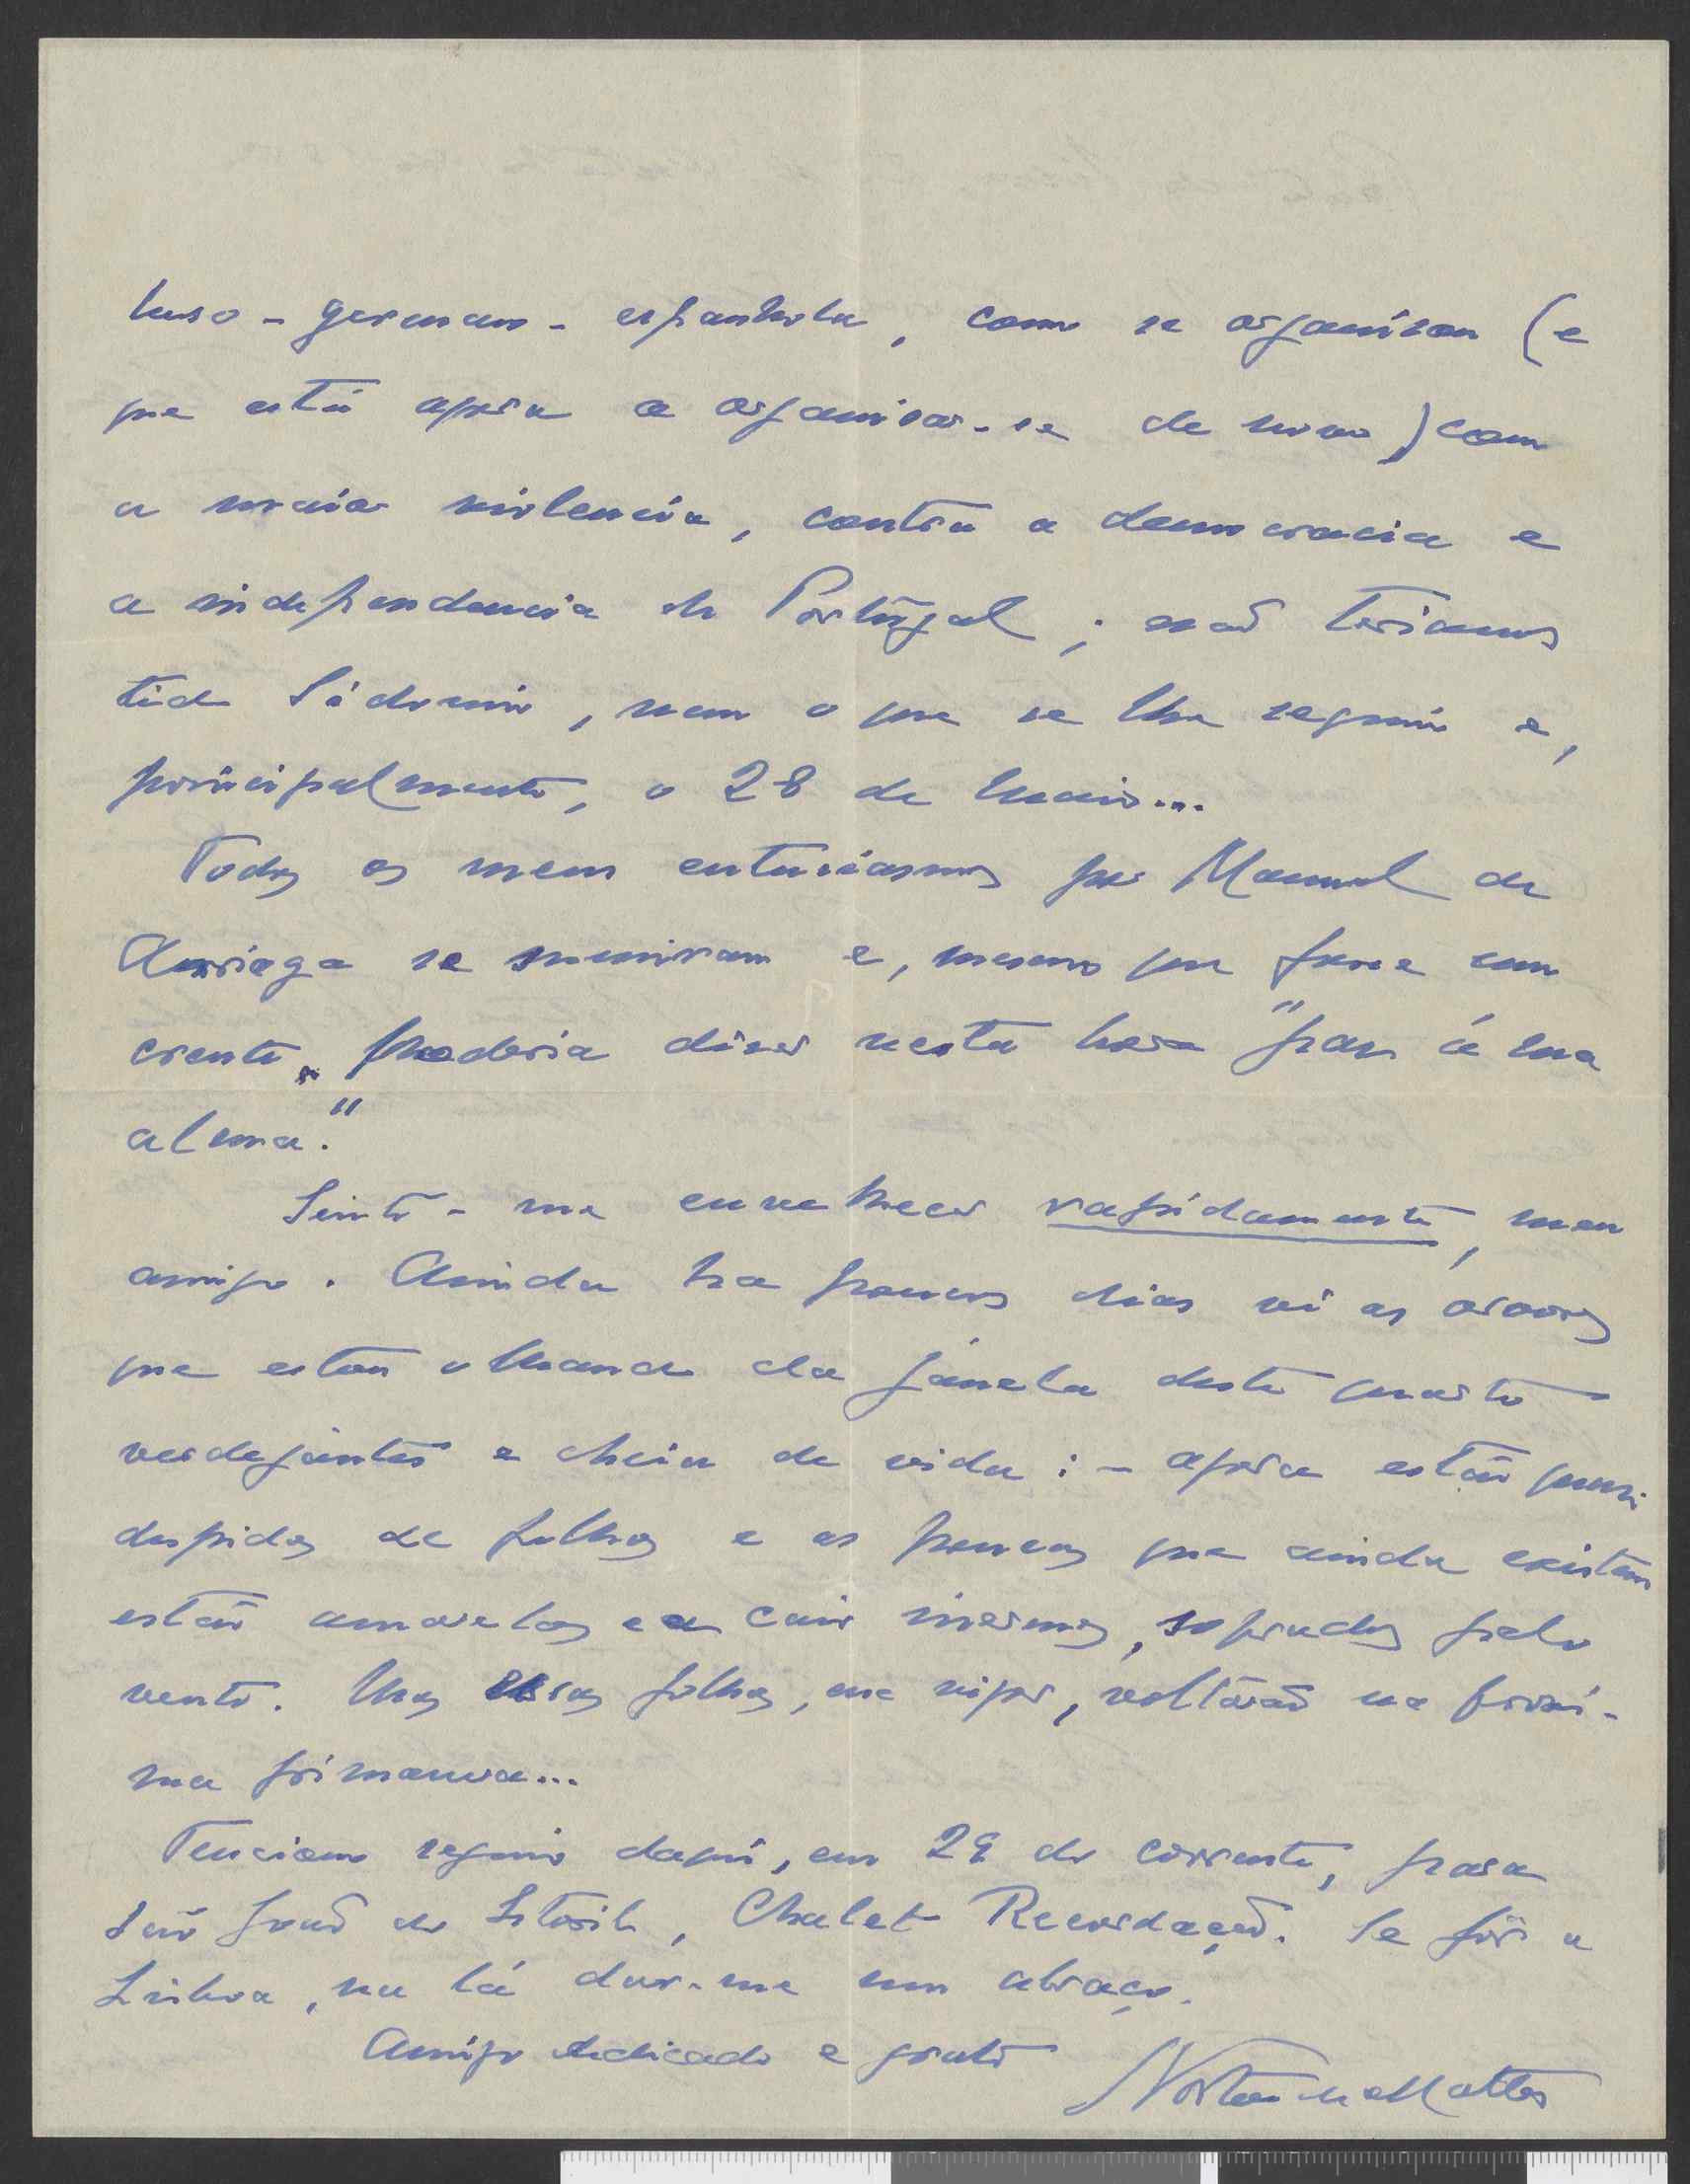 luso-germano-espanhola, como se organisou (e
que está agora a organisar-se de novo) com
a maior violencia, contra a democracia e
a independencia de Portugal; não teriamos
tido Sidonio, nem o que se lhe seguiu e,
principalmente, o 28 de Maio...
Todos os meus entusiasmos por Manuel de
Arriaga se sumiram e, mesmo que fosse um
crente, poderia dizer nesta hora "paz á sua
alma."
Sinto-me envelhecer rapidamente, meu
amigo. Ainda ha poucos dias vi as arvores
que estou olhando da janela deste quarto
verdejantes e cheias de vida: - agora estão quasi
despidas de folhas e as poucas que ainda existem
estão amarelas e a cair inermes, sopradas pelo
vento. Mas essas folhas, em vigor, voltarão na proxi-
ma primavera...
Tenciono seguir daqui, em 29 do corrente, para
São João do Estoril, Chalet Recordação. Se fôr a
Lisboa, vá lá dar-me um abraço.
Amigo dedicado e grato
Norton de Mattos